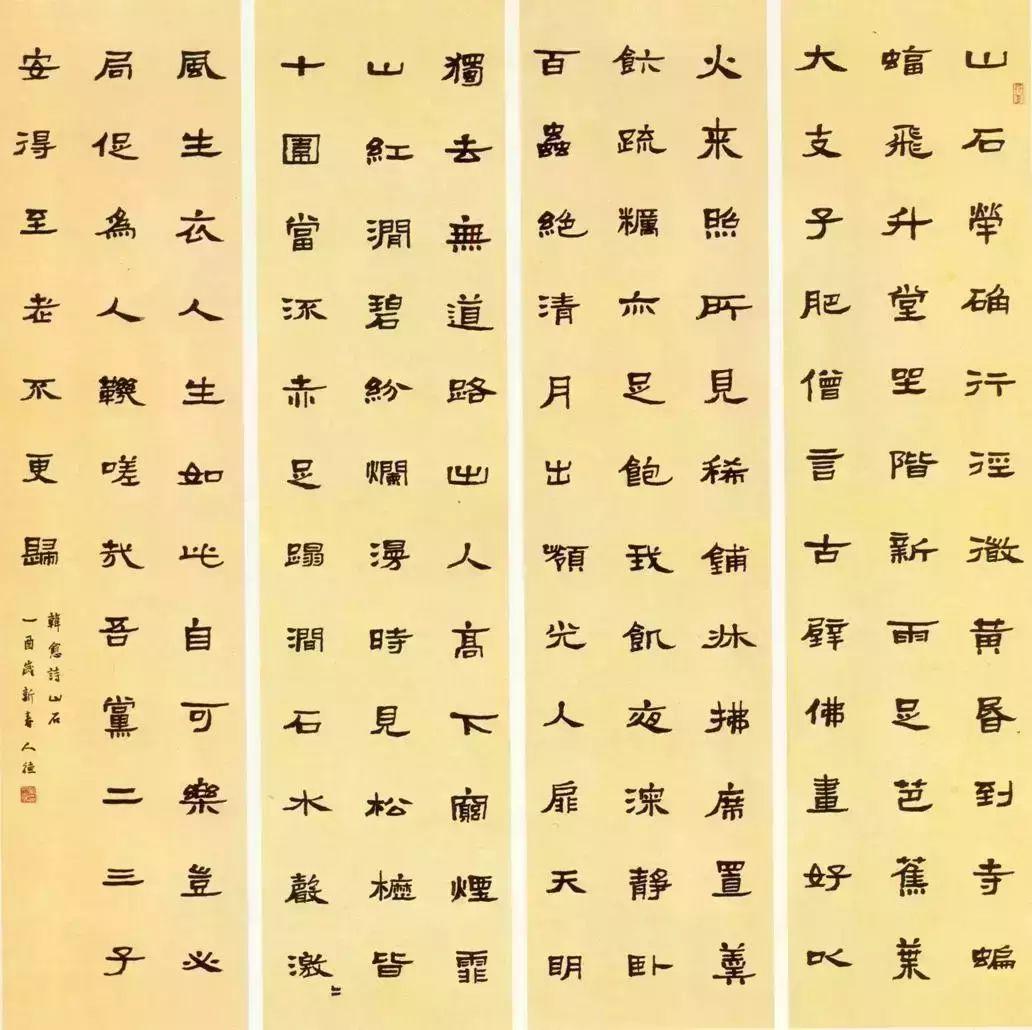 山石犖确行徑微黃昏到寺蝙
蝠飛升堂坐階新雨足芭蕉葉
大支子肥僧言古壁佛畫好以
火来照所見稀鋪牀拂席置羹
飯疏糲亦足飽我飢夜深靜卧
百蟲絕清月出嶺光入扉天明
獨去無道路出入高下窮煙霏
山紅澗碧紛爛漫時見松櫪皆
十圍當流赤足蹋澗石水聲激〻
風生衣人生如此自可樂豈必
局促為人鞿嗟哉吾黨二三子
安得至老不更歸
韓愈詩山石
乙酉歲新春人德